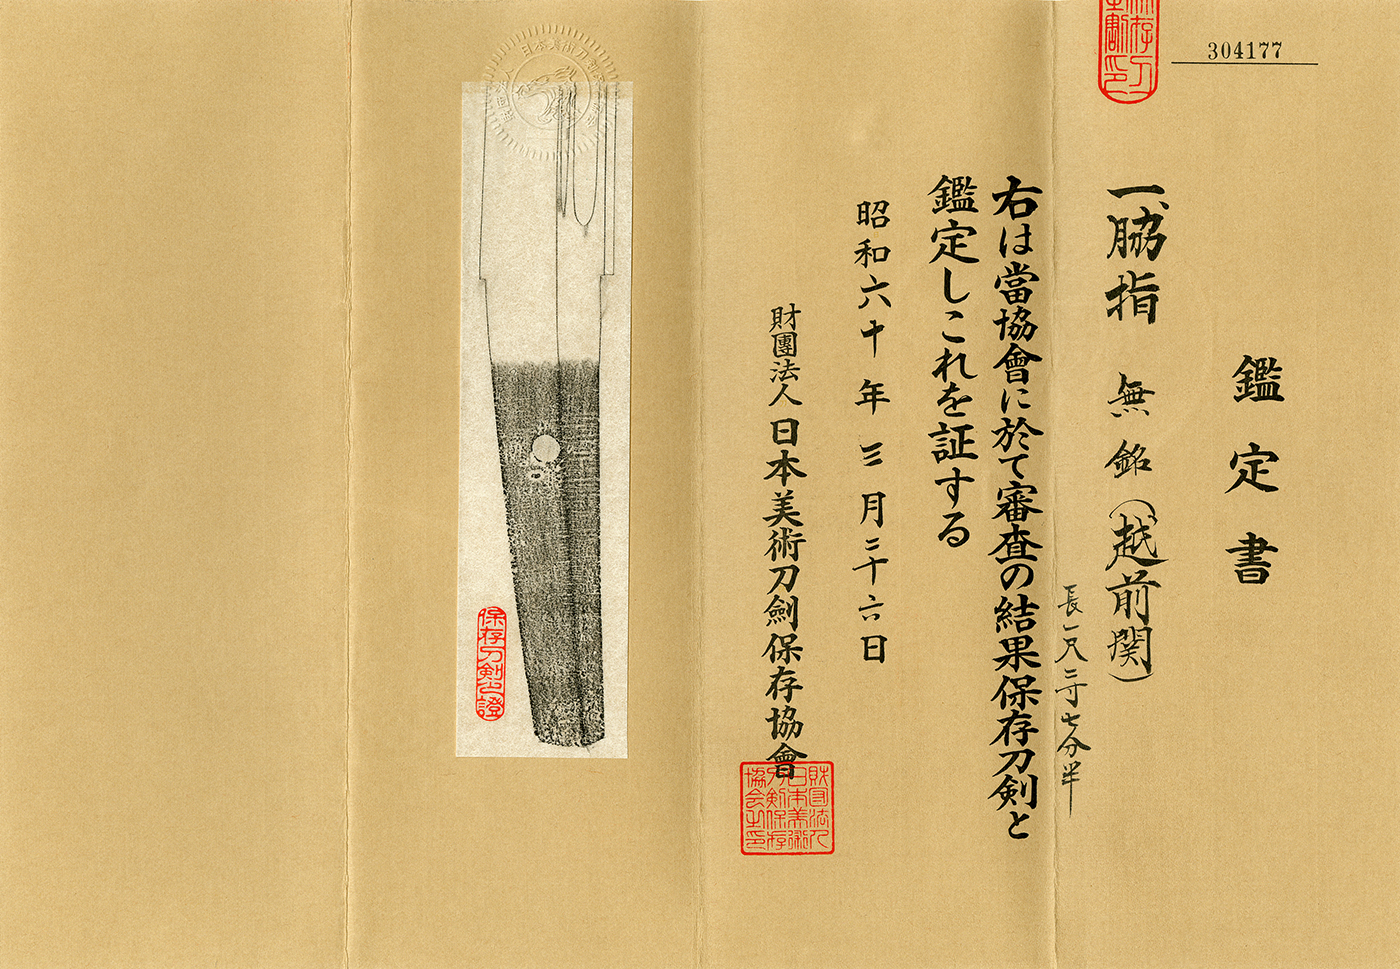 304177
鑑定書
一、脇指 無銘(越前関)
長一尺二寸七分半
右は當協會に於て審査の結果保存刀剣と
鑑定しこれを証する
昭和六十年三月二十六日
財團法人日本美術刀劍保存協會
財団法人
日本美術
刀剣保存
協会之印
保存刀剣之證
日本美術刀剣